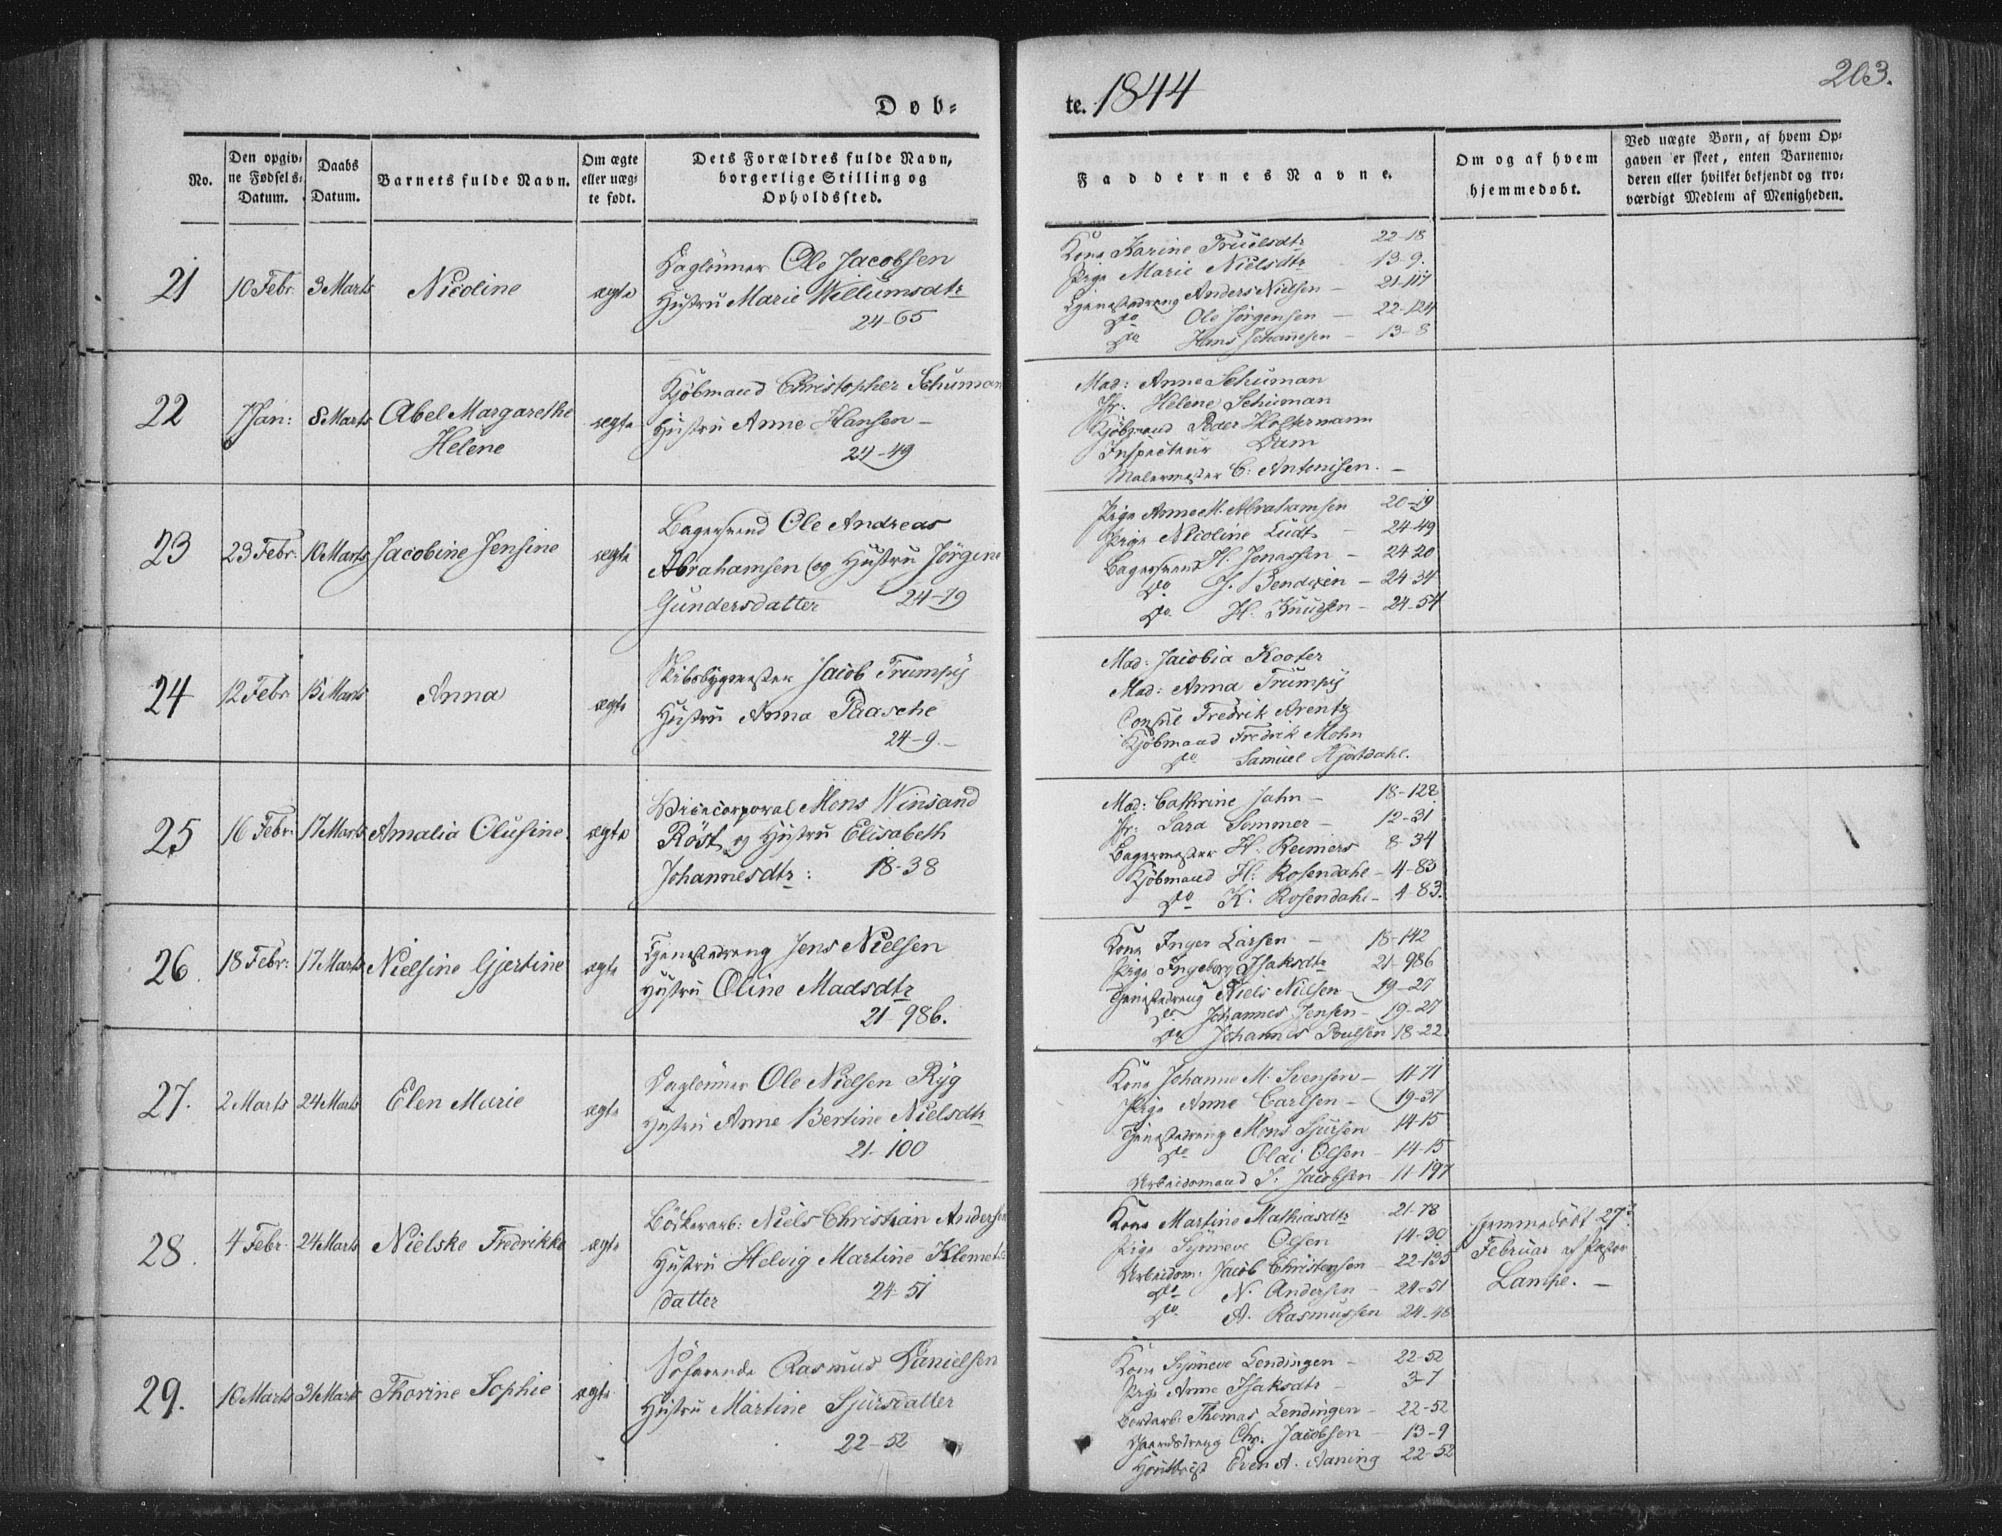 Døb-
te. 1844
203.
No.
Den opgiv-
ne Fødsels-
Datum.
Daabs
Datum.
Barnets fulde Navn.
Om ægte
eller uæg-
te født.
Dets Forældres fulde Navn,
borgerlige Stilling og
Opholdssted.
Faddernes Navne.
Om og af hvem
hjemmedøbt.
Ved uægte Børn, af hvem Op-
gaven er skeet, enten Barnemo-
deren eller hvilket bekjendt og tro-
værdigt Medlem af Menigheden.
21 10 Febr. 3 Marts Nicoline ægte
Daglønner Ole Jacobsen
Hustru Marie Willumsdtr
24-65
Kone Karine Truelsdtr 22-18
Pige Marie Nielsdtr 13-9.
Tjenestedreng Anders Nielsen - 21-117
Do Ole Jørgensen - 22-124
Do Hans Johannsen - 13-8
22 7 Jan: 8 Marts Abel Margarethe
Helene
ægte
Kjöbmand Christopher Schuman
Hustru Anne Hansen -
24-49
Mad: Anne Schuman
Jfr. Helene Schuman
Kjöbmand Peder Holtermann
Inspecteur Dam
Malermester C. Antonisen. -
23 23 Febr. 10 Marts Jacobine Jensine ægte
Bagersvend Ole Andreas
Abrahamsen og Hustru Jörgine
Gundersdatter 24-79
Pige Anne M. Abrahamsen 20-19
Pige Nicoline Ludt - 24-49
Bagersvend H. Jonassen - 24-20
Do J. Bendixen - 24-34
Do H. Knudsen - 24-54
24 12 Febr 15 Marts Anna ægte
Skibsbygmester Jacob Trumpÿ
Hustru Anna Paasche
24-9.-
Mad: Jacobia Kooter
Mad: Anna Trumpÿ
Consul Fredrik Arentz
Kjöbmand Fredrik Mohn
Do Samuel Hjortdahl.
25 16 Febr: 17 Marts Amalia Olusine. ægte
Vicecorporal Mons Winsand
Röst og Hustru Elisabeth
Johannesdtr: 18-38
Mad: Cathrine Jahn - 18-128
Jfr. Sara Sommer - 12-31
Bagermester H. Reimers 8-34
Kjöbmand H. Rosendahl - 4-83
Do K. Rosendahl - 4-83.
26. 18 Febr: 17 Marts Nielsine Gjertine ægte
Tjenestedreng Jens Nielsen
Hustru Oline Madsdtr
21-986.
Kone Inger Larsen - 18-142
Pige Ingeborg Isaksdtr 21-986
Tjenestedreng Niels Nielsen - 19-27
Do Johannes Jensen - 19-27
Do Johannes Poulsen 18-22
27. 2 Marts 24 Marts Elen Marie ægte
Daglönner Ole Nielsen Ryg
Hustru Anne Bertine Nielsdtr
21-100
Kone Johanne M. Svensen - 11-71
Pige Anne Carlsen - 19-37
Tjenestedreng Mons Sjursen 14-15
Do Olai Olsen - 14-15
Arbeidsmand S. Jacobsen - 11-197
28. 4 Febr. 24 Marts Nielske Fredrikke ægte
Bödkerarb: Niels Christian Andersen
Hustru Helvig Martine Klemets
datter 24-51
Kone Martine Mathiasdtr 21-78
Pige Synneve Olsen 14-30
Arbeidsm. Jacob Christensen - 22-135
Do N. Andersen - 24-51
Do A. Rasmussen 24-46
hjemmedöbt 27de
Februar af Pastor
Lampe. -
29. 10 Marts 31 Marts Thorine Sophie ægte
Söfarende Rasmus Danielsen
Hustru Martine Sjursdatter
22-52
Kone Synneve Lendingen - 22-52
Pige Anne Isaksdtr - 3-7
Bordarb: Thomas Lendingen - 22-52
Gaardsdreng Chr. Jacobsen - 13-9
Even A. Aaning 22-52